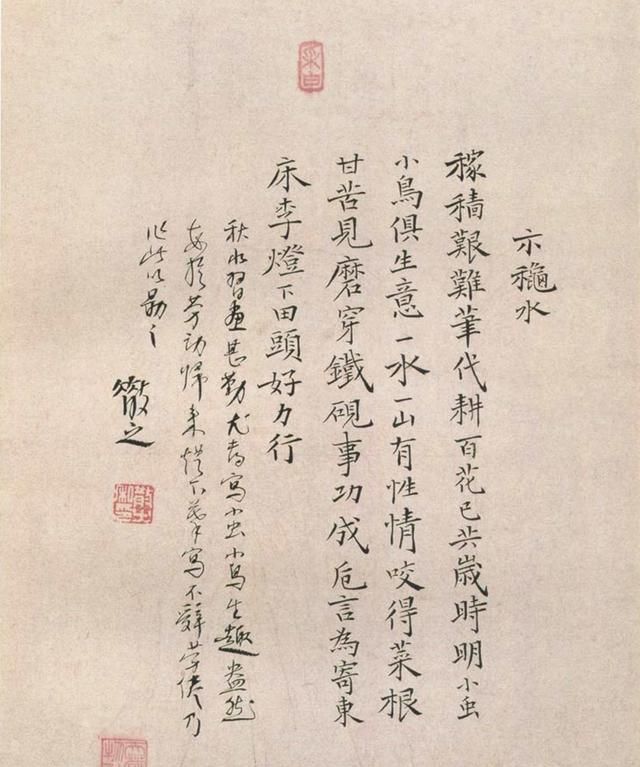 示龝水
稼穡艱難筆代耕百花已共歲時明小虫
小鳥俱生意一水一山有性情咬得菜根
甘苦見磨穿鐵硯事功成卮言為寄東
床李燈下田頭好力行
秋水習畫甚勤尤喜寫小虫小鳥生趣盎然
每於勞動歸來燈下摹寫不辭勞倦乃
作此以勗之
徵之